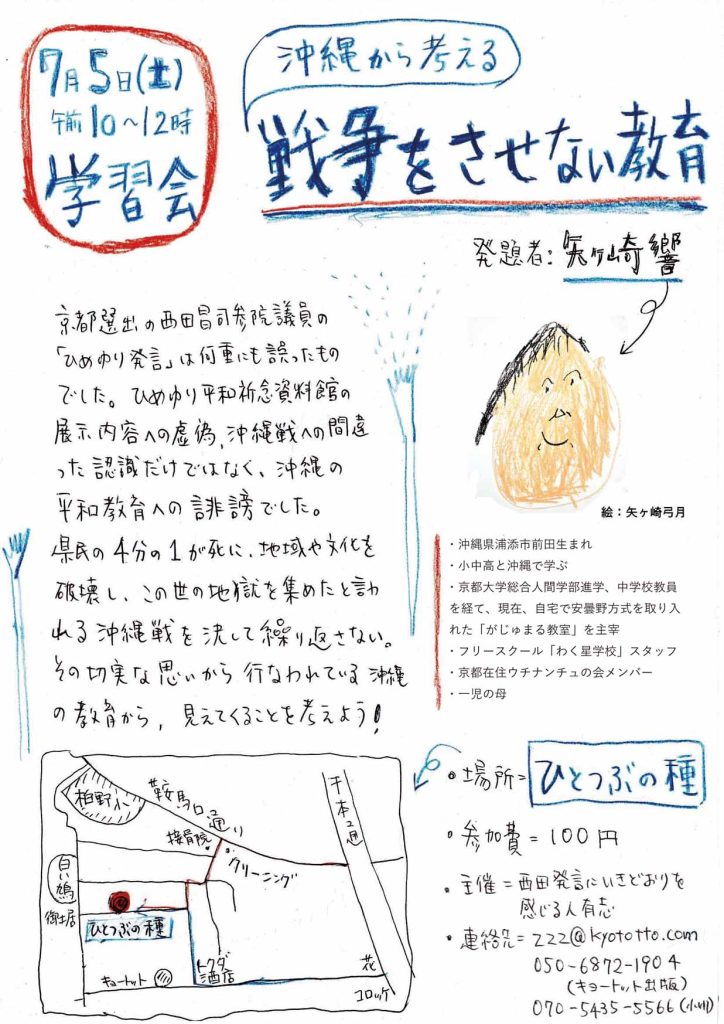 7月5日(土)
午前10〜12時
学習会
沖縄から考える
戦争をさせない教育
発題者:矢ヶ崎響
京都選出の西田昌司参院議員の
「ひめゆり発言」は何重にも誤ったもの
でした。ひめゆり平和祈念資料館の
展示内容への虚偽,沖縄戦への間違
った認識だけではなく、沖縄の
平和教育への誹謗でした。
県民の4分の1が死に、地域や文化を
破壊し、この世の地獄を集めたと言わ
れる沖縄戦を決して繰り返さない。
その切実な思いから行なわれている沖縄
の教育から、見えてくることを考えよう!
絵:矢ヶ崎弓月
・沖縄県浦添市前田生まれ
・小中高と沖縄で学ぶ
・京都大学総合人間学部進学、中学校教員
を経て、現在、自宅で安曇野方式を取り入
れた「がじゅまる教室」を主宰
・フリースクール「わく星学校」スタッフ
・京都在住ウチナンチュの会メンバー
・一児の母
柏野小
鞍馬口通り
千本通
接骨院
クリーニング
白い鳩
御土居
ひとつぶの種
トクダ
酒店
キョートット
花
コロッケ
・場所=ひとつぶの種
・参加費=100円
・主催=西田発言にいきどおりを
感じる人有志
・連絡先=zzz@kyototto.com
050-6872-1904
(キョートット出版)
070-5435-5566(小川)